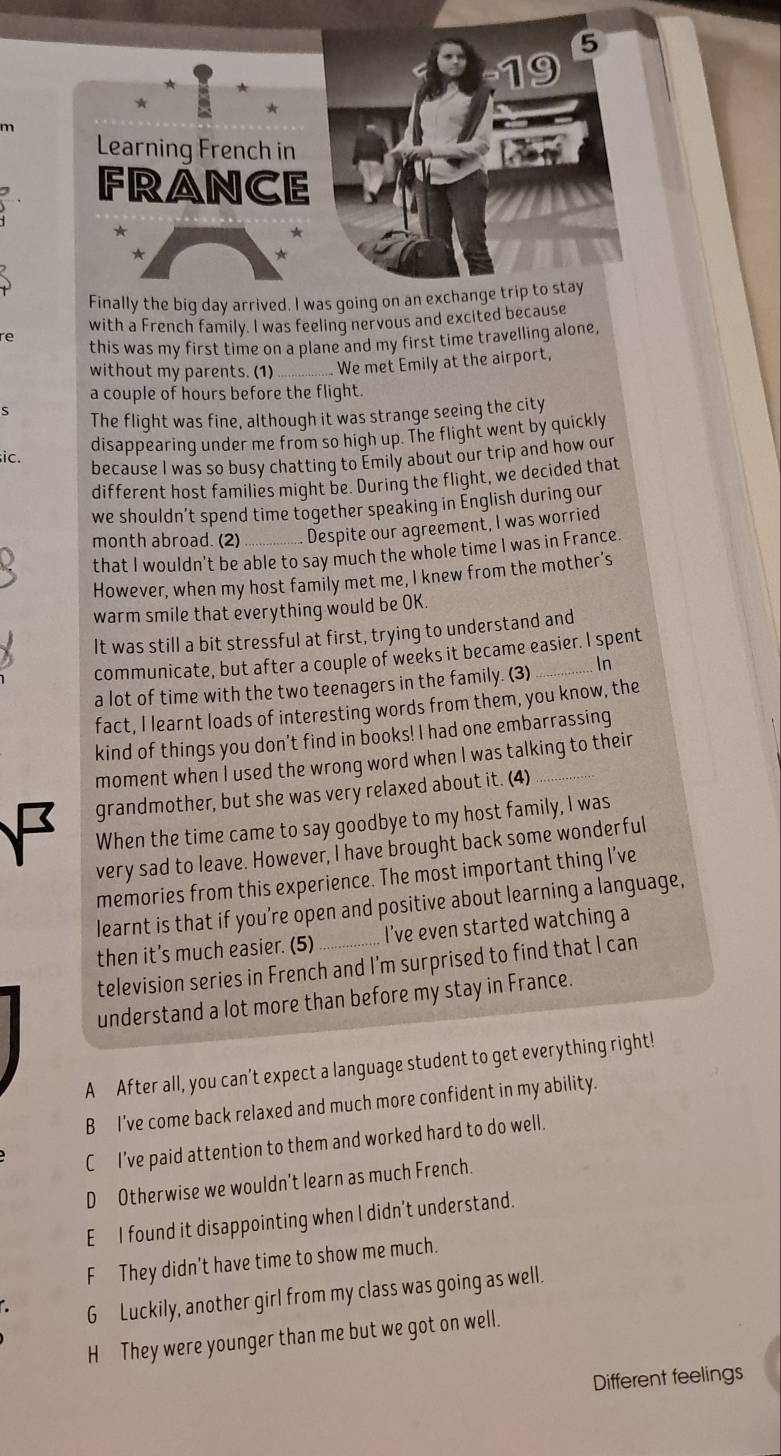 5
-19
m
Learning French in
FRANCE
Finally the big day arrived. I was going on an exchange trip to stay
with a French family. I was feeling nervous and excited because
re
this was my first time on a plane and my first time travelling alone,
without my parents. (1) ............... We met Emily at the airport,
a couple of hours before the flight.
s
The flight was fine, although it was strange seeing the city
disappearing under me from so high up. The flight went by quickly
sic.
because I was so busy chatting to Emily about our trip and how our
different host families might be. During the flight, we decided that
we shouldn't spend time together speaking in English during our
month abroad. (2) ............... Despite our agreement, I was worried
that I wouldn't be able to say much the whole time I was in France.
However, when my host family met me, I knew from the mother's
warm smile that everything would be OK.
It was still a bit stressful at first, trying to understand and
communicate, but after a couple of weeks it became easier. I spent
a lot of time with the two teenagers in the family. (3) ............... In
fact, I learnt loads of interesting words from them, you know, the
kind of things you don't find in books! I had one embarrassing
moment when I used the wrong word when I was talking to their
grandmother, but she was very relaxed about it. (4) ...............
When the time came to say goodbye to my host family, I was
very sad to leave. However, I have brought back some wonderful
memories from this experience. The most important thing I've
learnt is that if you're open and positive about learning a language,
then it's much easier. (5) ............... I've even started watching a
television series in French and I'm surprised to find that I can
understand a lot more than before my stay in France.
A After all, you can't expect a language student to get everything right!
B I've come back relaxed and much more confident in my ability.
C I've paid attention to them and worked hard to do well.
D Otherwise we wouldn't learn as much French.
E I found it disappointing when I didn't understand.
F They didn't have time to show me much.
G Luckily, another girl from my class was going as well.
H They were younger than me but we got on well.
Different feelings